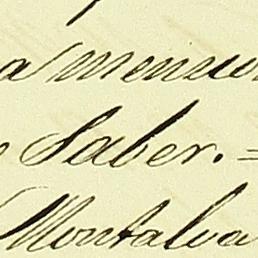 a mencion
Saber. =
Montalva